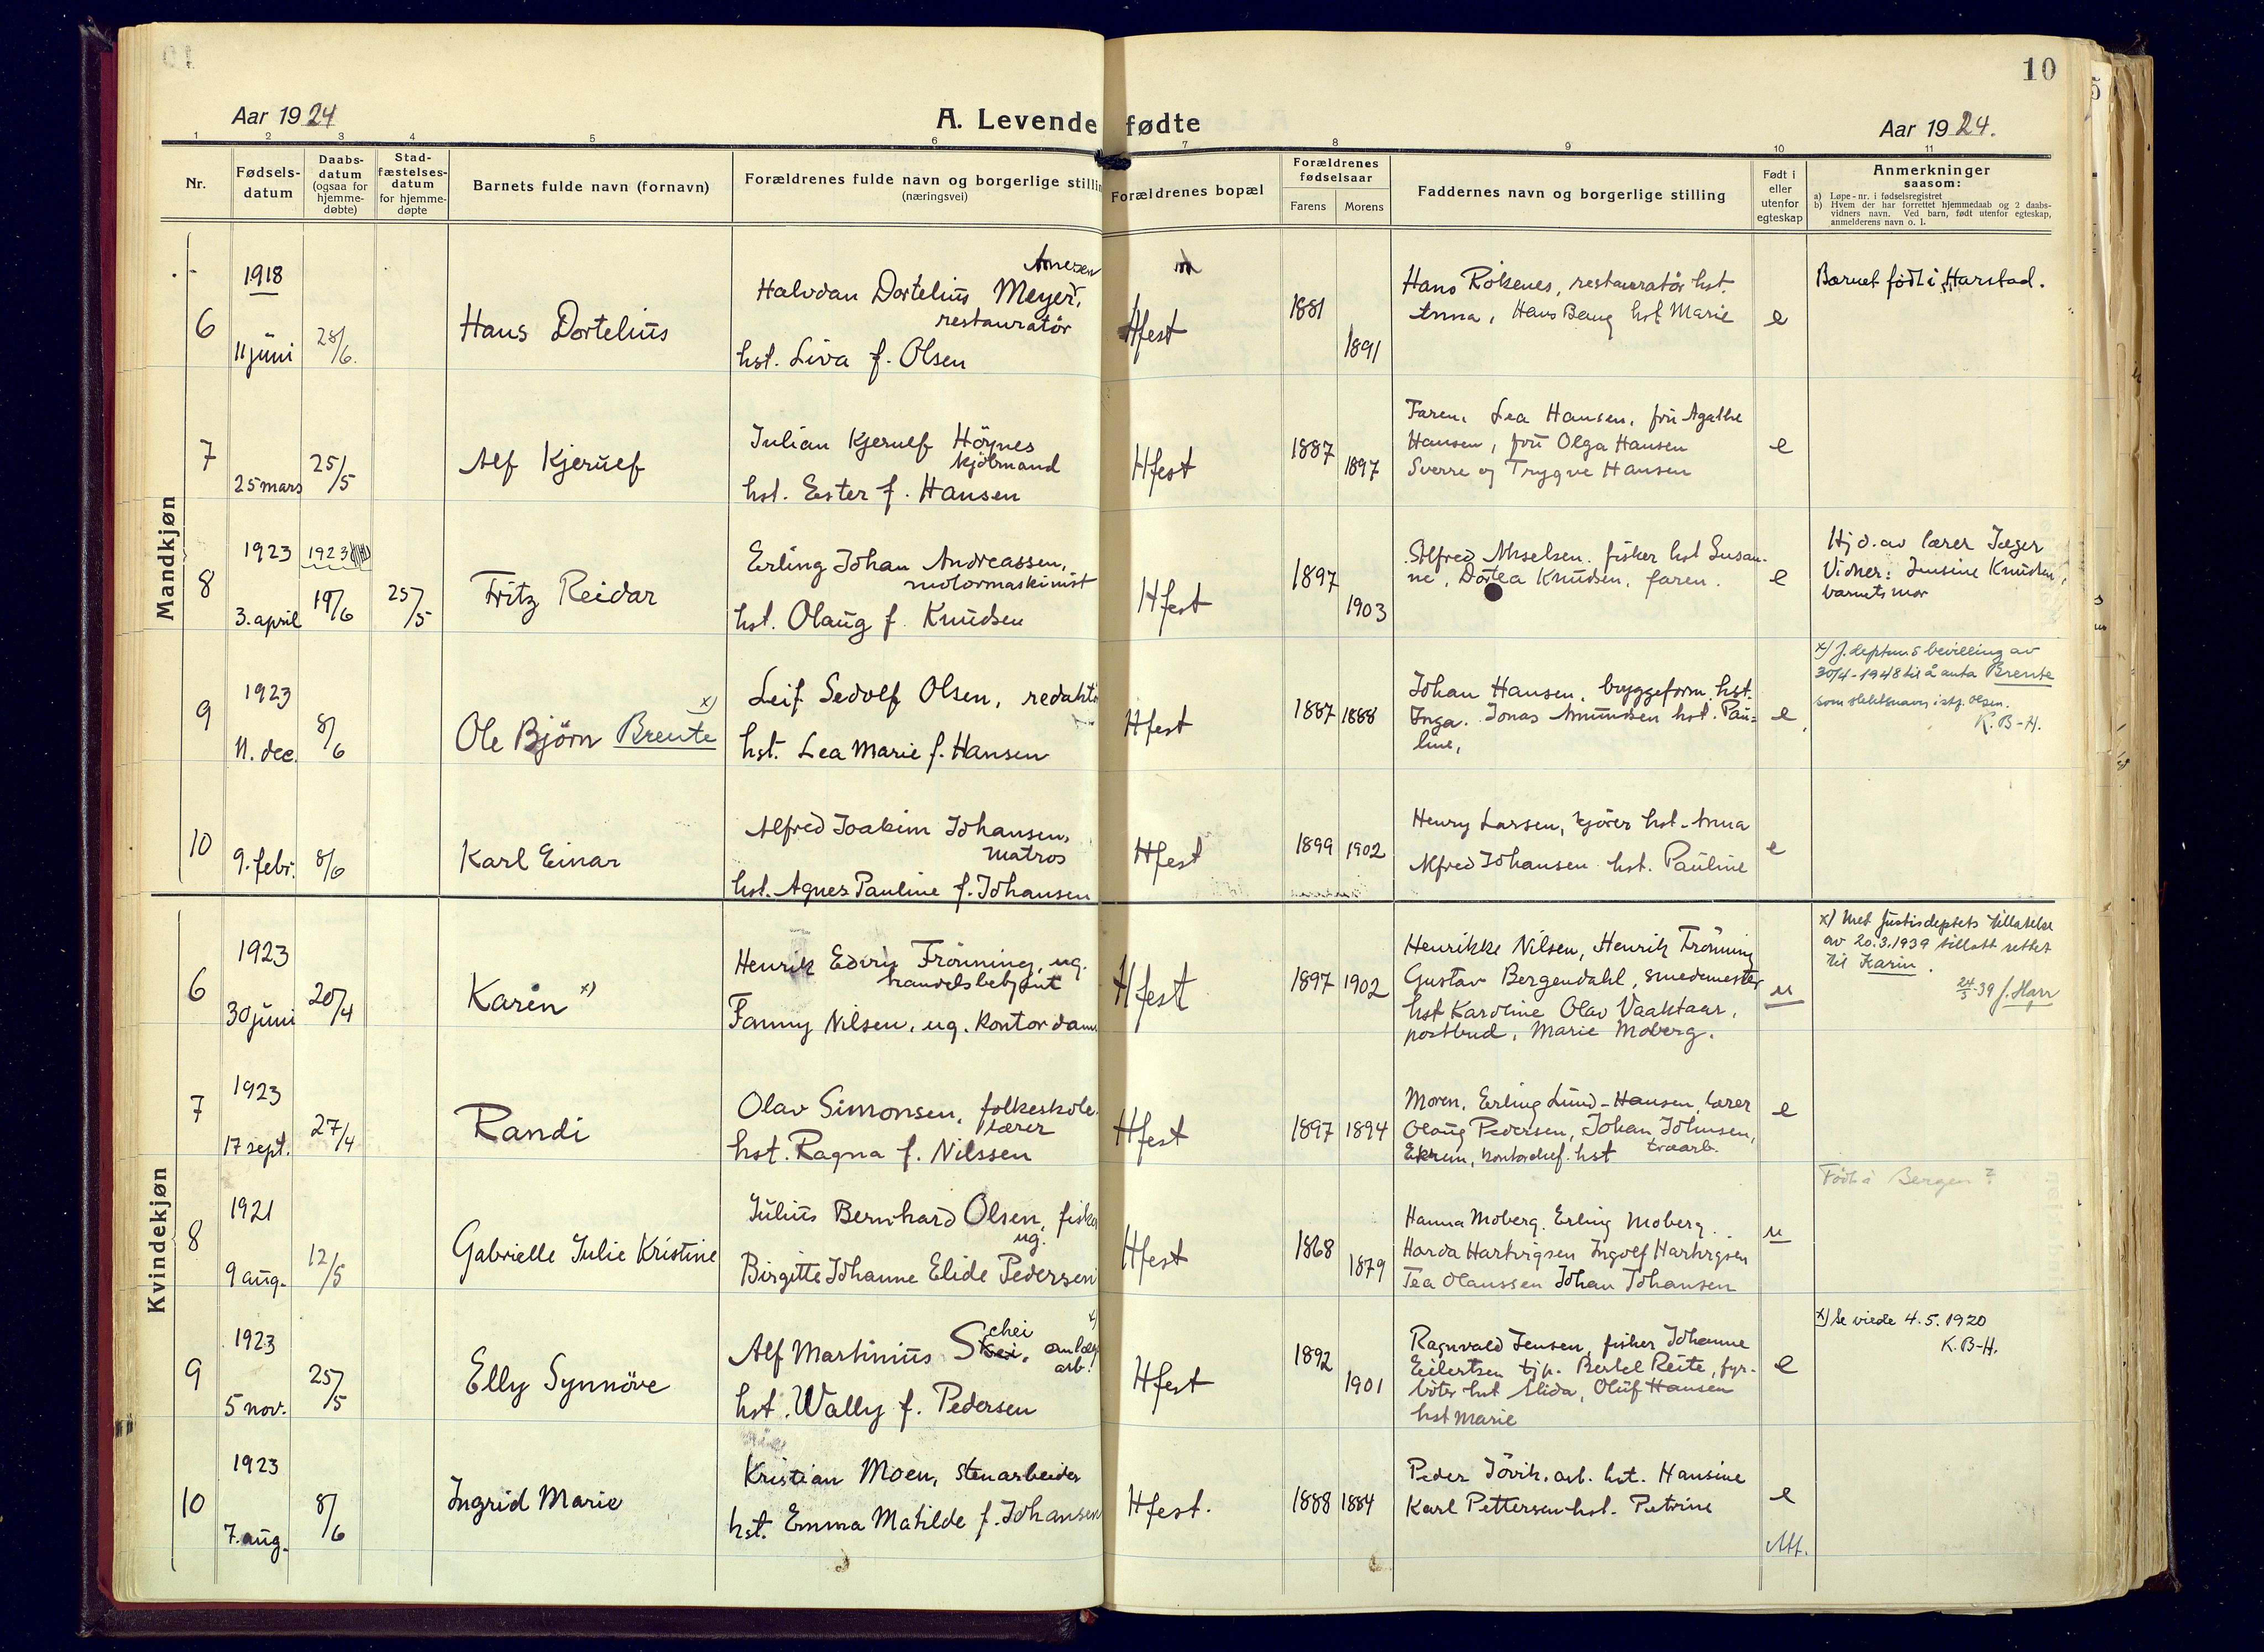 10
Aar 1924
A. Levende fødte
Aar 1924.
1 2 3 4 5 6 7 8 9 10 11
Nr.
Fødsels-
datum
Daabs-
datum
(ogsaa for
hjemme-
døbte)
Stad-
fæstelses-
datum
for hjemme-
døpte
Barnets fulde navn (fornavn)
Forældrenes fulde navn og borgerlige stillin
(næringsvei)
Forældrenes bopæl
Forældrenes
fødselsaar
Farens Morens
Faddernes navn og borgerlige stilling
Født i
eller
utenfor
egteskap
Anmerkninger
saasom:
a) Løpe-nr. i fødselsregistret
b) Hvem der har forrettet hjemmedaab og 2 daabs-
vidners navn. Ved barn, født utenfor egteskap,
anmelderens navn o. l.
Mandkjøn
6
1918
11 juni
28/6.
Hans Dortelius
Arnesen
Halvdan Dortelius Meyer,
restauratør
hst. Liva f. Olsen
Hfest
1881
1891
Hans Rölsenes, restauratör hst.
Anna, Hans Baug hst Marie
e
Barnet född i Harstad.
7
25 mars
25/5
Alf Kjerulf
Julian Kjerulf Höynes
kjöbmand
hst. Ester f. Hansen
Hfest
1887
1897
Faren. Lea Hansen, fru Agathe
Hansen, fru Olga Hansen
Sverre og Trygve Hansen
e
8
1923
3. april
1923
19/6
25/5
Fritz Reidar
Erling Johan Andreassen,
motormaskinist
hst. Olaug f. Knudsen
Hfest
1897
1903
Alfred Akselsen. fisker hst Susan-
ne, Dortea Knudsen, faren.
e
Hjd. av lærer Jæger
Vidner: Jensine Knudsen,
barnets mor
9
1923
11. dec.
8/6
Ole Björn Brente x)
Leif Sedolf Olsen, redaktö
hst. Lea Marie f. Hansen
Hfest
1887 1888
Johan Hansen, bryggeform. hst.
Inga. Jonas Amundsen hst. Pau-
line,
e
x) J. deptms bevilling av
30/4-1948 til å anta Brente
som slektsnavn istf. Olsen.
K. B-H.
10
9. febr.
8/6
Karl Einar
Alfred Joakim Johansen,
matros
hst. Agnes Pauline f. Johansen
Hfest
1899 1902
Henry Larsen, kjörer hst. Anna
Alfred Johansen hst. Pauline
e
Kvindekjøn
6
1923
30 juni
20/4
Karen x)
Henrik Edvin Frönning, ug.
handelsbetjent
Fanny Nilsen, ug. kontordam
Hfest
1897 1902
Henrikke Nilsen, Henrik Frönning
Gustav Bergendahl, smedemester
hst Karoline Olav Vaaktaar,
postbud, Marie Moberg.
u
x) Met Justisdeptets tillatelse
av 20.3.1939 tillatt rettet
til Karin.
24/3-39 J. Harr
7
1923
17 sept.
27/4
Randi
Olav Simonsen, folkeskole-
lærer
hst. Ragna f. Nilssen
Hfest
1897 1894
Moren. Erling Lund-Hansen, lærer
Olaug Pedersen, Johan Johnsen,
træarb.
Ekrem, kontorchef. hst
e
8
1921
9 aug.
12/5
Gabrielle Julie Kristine
Julius Bernhard Olsen, fisker
ug.
Birgitte Johanne Elide Pedersen
Hfest
1868
1879
Hanna Moberg. Erling Moberg.
Harda Hartvigsen Ingolf Hartvigsen
Tea Olaussen Johan Johansen
u
Född i Bergen?
9
1923
5 nov.
25/5
Elly Synnöve
Alf Martinius Schei, anlægs
arb. x)
hst. Wally f. Pedersen
Hfest
1892
1901
Ragnvald Jensen, fisker Johanne
Eilertsen tjp. Bertel Reite, fyr-
böter hst Elida, Oluf Hansen
hst Marie
e
x) Se viede 4.5.1920
K. B-H.
10
1923
7. aug.
8/6
Ingrid Marie
Kristian Moen, stenarbeider
hst. Emma Matilde f. Johansen
Hfest.
1888 1884
Peder Jövik, arb. hst. Hansine
Karl Pettersen hst. Petrine
e